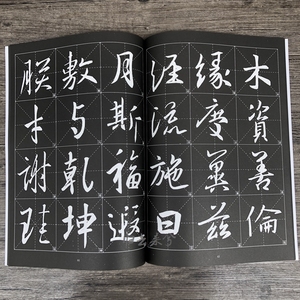 木資善倫
緣慶冀茲
經流施日
月斯福遐
敷与乾坤
朕才謝珪